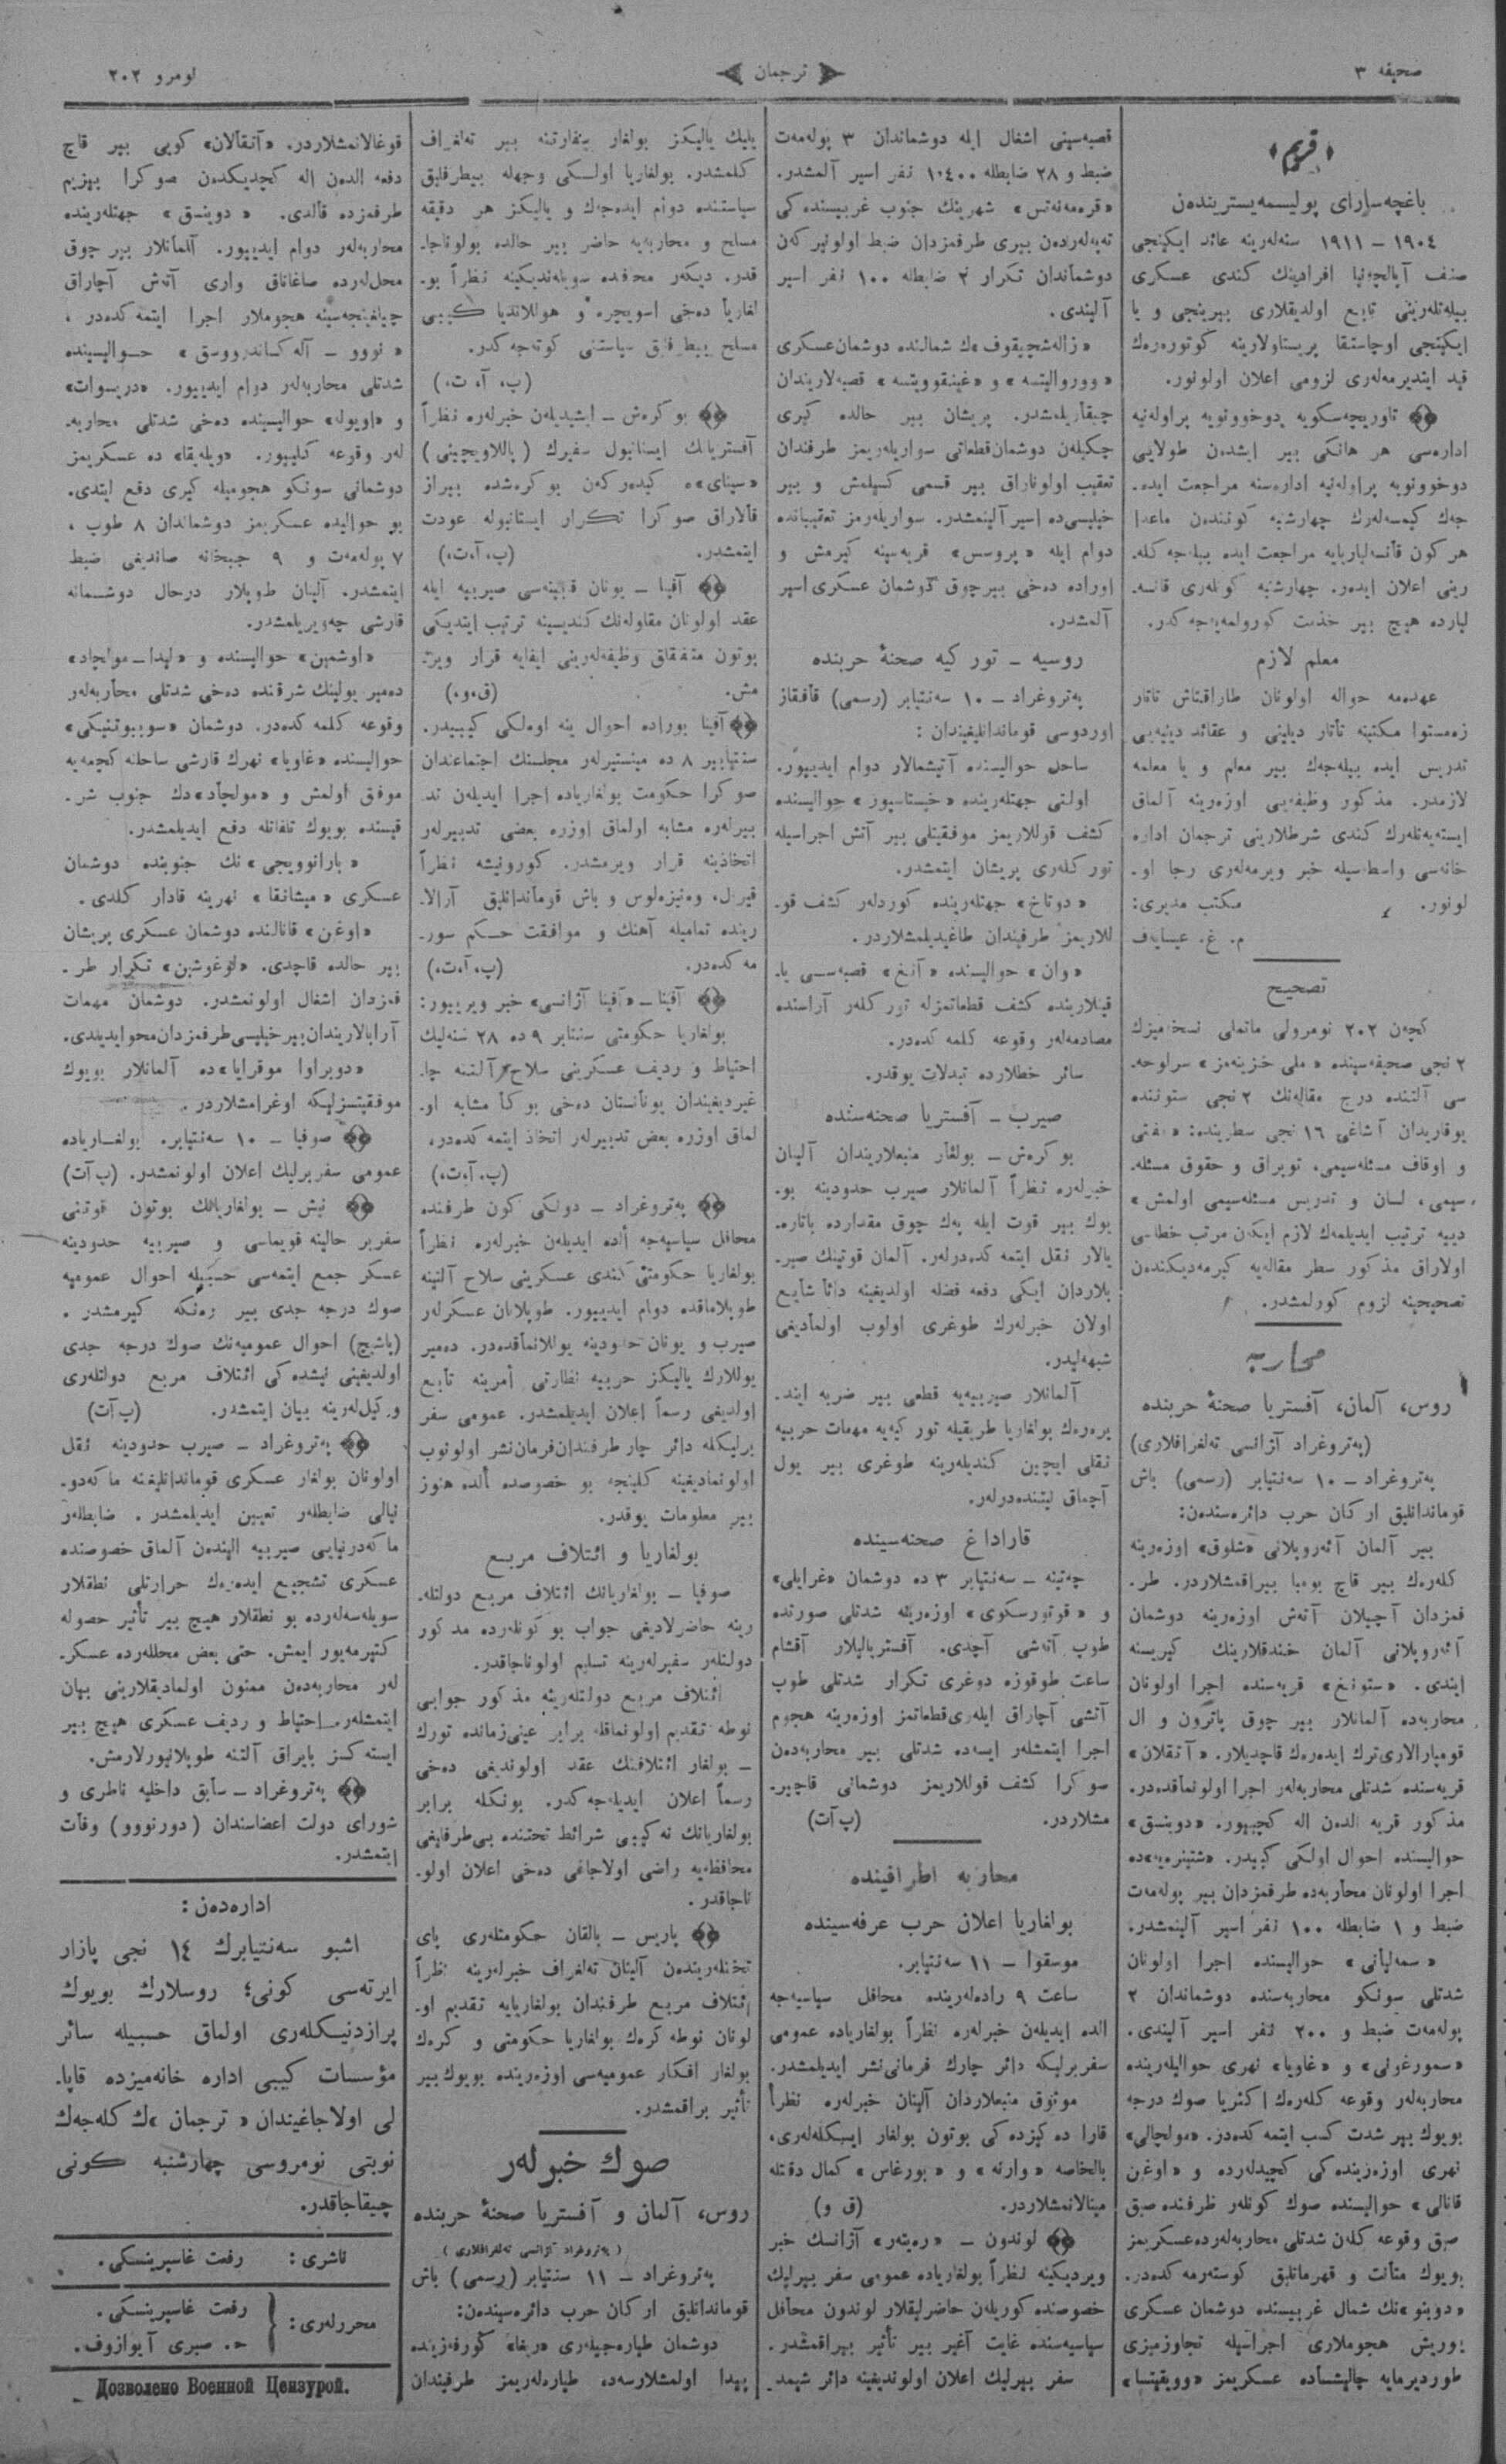 صحیفه ٣
ترجمان
نومرو ٢٠٢
قریم
باغچه‌سارای پولیسمه‌یستریندەن
١٩٠٤ – ١٩١١ سنه‌لرینه عائد ایکینجی
صنف آپالچه‌نیا افرادینك کندی عسکری
بیله‌تله‌رینی تابع اولدیقلاری بیرینجی و یا
ایکینجی اوچاستقا پریستاولارینه کوتوره‌رەك
قید ایتدیرمه‌لەری لزومی اعلان اولونور.
تاوریچه‌سکویه دوخوونویه پراولەنیه
اداره‌سی هر هانکی بیر ایشدن طولایی
دوخوونویه پراولەنیه اداره‌سنه مراجعت ایده‌-
جەك کیمسه‌لەرك چهارشنبه کونندەن ماعدا
هرکون قانسه‌لیاریایه مراجعت ایده بیله‌جەکله‌-
رینی اعلان ایدەر. چهارشنبه کونلەری قانسه‌-
لیارده هیچ بیر خذمت کورولمه‌یەجەکدر.
معلم لازم
عهده‌مه حواله اولونان طاراقتاش تاتار
زەمستوا مکتبنه تاتار دیلینی و عقائد دینیه‌یی
تدریس ایده بیله‌جەك بیر معلم و یا معلمه
لازمدر. مذکور وظیفه‌یی اوزەرینه آلماق
ایسته‌یەنلەرك کندی شرطلارینی ترجمان اداره
خانه‌سی واسطه‌سیله خبر ویرمه‌لەری رجا او-
لونور. مکتب مدیری:
م. غ. عیسایەف
تصحیح
کچەن ٢٠٢ نومرولی ماتملی نسخه‌میزك
٢ نجی صحیفه‌سینده «ملی خزینه‌مز» سرلوحه‌-
سی آلتنده درج مقاله‌نك ٢ نجی ستوننده
یوقاریدان آشاغی ١٦ نجی سطرینده: «مفتی
و اوقاف مسئله‌سیمی، توپراق و حقوق مسئله‌-
سیمی، لسان و تدریس مسئله‌سیمی اولمش»
دییه ترتیب ایدیلمەك لازم ایکەن مرتب خطاسی
اولاراق مذکور سطر مقاله‌یه کیرمه‌دیکندەن
تصحیحینه لزوم کورلمشدر.
محاربه
روس، آلمان، آفستریا صحنۀ حربنده
(پەتروغراد آژانسی تەلغرافلاری)
پەتروغراد – ١٠ سەنتیابر (رسمی) باش
قومانداتلیق ارکان حرب دائره‌سندەن:
بیر آلمان آئه‌روپلانی «شلوق» اوزەرینه
کلەرەك بیر قاچ بومبا بیراقمشلاردر. طر-
فمزدان آچیلان آتەش اوزەرینه دوشمان
آئه‌روپلانی آلمان خندقلارینك کیریسنه
ایندی. «ستونغ» قریه‌سنده اجرا اولونان
محاربه‌ده آلمانلار بیر چوق پاترون و ال
قومبارالاری ترك ایدەرەك قاچدیلار. «آنقلان»
قریه‌سنده شدتلی محاربه‌لەر اجرا اولونماقدەدر.
مذکور قریه الدەن اله کچیپور. «دوینسق»
حوالیسنده احوال اولکی کبیدر.
اجرا اولونان محاربه‌ده طرفمزدان بیر پولەمەت
ضبط و ١ ضابطله ١٠٠ نفر اسیر آلینمشدر.
حوالیسنده اجرا اولونان
شدتلی سونکو محاربه‌سنده دوشماندان ٢
پولەمەت ضبط و ٢٠٠ نفر اسیر آلیندی.
«سمورغونی» و «غاویا» نهری حوالیلەرینده
محاربه‌لەر وقوعه کلەرەك اکثریا صوك درجه
بویوك بیر شدت کسب ایتمه‌کدەدر. «مولچالی»
نهری اوزەرینده‌کی کچیدلەرده و «اوغن
قانالی» حوالیسنده صوك کونلەر ظرفنده صیق
صیق وقوعه کلەن شدتلی محاربه‌لەرده عسکریمز
بویوك متانت و قهرمانلیق کوسته‌رمه‌کدەدر.
«دوبنو»نك شمال غربیسنده دوشمان عسکری
یوریش هجوملاری اجراسیله تجاوزمیزی
طوردیرمایه چالیشساده عسکریمز «وویقیتسا»
قصبه‌سینی اشغال ایله دوشماندان ٣ پولەمەت
ضبط و ٢٨ ضابطله ١٠٤٠٠ نفر اسیر آلمشدر.
«قرەمەنەتس» شهرینك جنوب غربیسنده‌کی
تەپه‌لەردەن بیری طرفمزدان ضبط اولونیرکەن
دوشماندان تکرار ٢ ضابطله ١٠٠ نفر اسیر
آلیندی.
«زالەشچیقوف»ك شمالنده دوشمان عسکری
قصبه‌لاریندان
چیقاریلمشدر. پریشان بیر حالده کیری
چکیلەن دوشمان قطعاتی سواریلەریمز طرفندان
تعقیب اولوناراق بیر قسمی کسیلمش و بیر
خیلیسی‌ده اسیر آلینمشدر. سواریلەرمز تعقیباتده
دوام ایله «پروسس» قریه‌سینه کیرمش و
اوراده دەخی بیرچوق دوشمان عسکری اسیر
آلمشدر.
روسیه – تورکیه صحنۀ حربنده
پەتروغراد – ١٠ سەنتیابر (رسمی) قافقاز
اوردوسی قومانداتلیغیندان:
ساحل حوالیسنده آتیشمالار دوام ایدییور.
اولتی جهتلەرینده حوالیسنده
کشف قوللاریمز موفقیتلی بیر آتش اجراسیله
تورکلەری پریشان ایتمشدر.
«دوتاخ» جهتلەرینده کوردلەر کشف قو-
للاریمز طرفیندان طاغیدیلمشلاردر.
«وان» حوالیسنده قصبه‌سی یا-
قینلارینده کشف قطعاتمزله تورکلەر آراسنده
مصادمه‌لەر وقوعه کلمه‌کدەدر.
سائر خطلارده تبدلات یوقدر.
صیرب – آفستریا صحنه‌سنده
بوکرەش – بولغار منبعلاریندان آلینان
خبرلەره نظراً آلمانلار صیرب حدودینه بو-
یوك بیر قوت ایله پەك چوق مقدارده باتاره-
یالار نقل ایتمه‌کدەدرلەر. آلمان قوتینك صیر-
بلاردان ایکی دفعه فضله اولدیغینه دائر شایع
اولان خبرلەرك طوغری اولوب اولمادیغی
شبهه‌لیدر.
آلمانلار صیربیه‌یه قطعی بیر ضربه ایند-
یرەرەك بولغاریا طریقیله تورکیه‌یه مهمات حربیه
نقلی ایچین کندیلەرینه طوغری بیر یول
آچماق نیتنده‌درلەر.
قاراداغ صحنه‌سینده
چەتینه – سەنتیابر ٣ ده دوشمان «غرابلی»
و اوزەرینه شدتلی صورتده
طوپ آتەشی آچدی. آفستریالیلار آقشام
ساعت طوقوزه دوغری تکرار شدتلی طوپ
آتشی آچاراق ایلەری قطعاتمز اوزەرینه هجوم
اجرا ایتمشلەر ایسەده شدتلی بیر محاربه‌دەن
صوکرا کشف قوللاریمز دوشمانی قاچیر-
مشلاردر. (پ آت)
محاربه اطرافینده
بولغاریا اعلان حرب عرفه‌سینده
موسقوا – ١١ سەنتیابر.
ساعت ٩ راده‌لەرینده محافل سیاسیه‌جه
الده ایدیلەن خبرلەره نظراً بولغاریاده عمومی
سفربرلیکه دائر چارك فرمانی نشر ایدیلمشدر.
موثوق منبعلاردان آلینان خبرلەره نظراً
قارا دەکیزده‌کی بوتون بولغار ایسکله‌لەری،
بالخاصه «وارنه» و «بورغاس» کمال دقتله
مینالانمشلاردر. (ق و)
لوندون – «رەیتەر» آژانسك خبر
ویردیکینه نظراً بولغاریاده عمومی سفربیرلیك
خصوصنده کوریلەن حاضرلیقلار لوندون محافل
سیاسیه‌سنده غایت آغیر بیر تأثیر بیراقمشدر.
سفر بیرلیك اعلان اولوندیغینه دائر شیمد-
یلیك یالیکز بولغار سفارتنه بیر تەلغراف
کلمشدر. بولغاریا اولکی وجهله بیطرفلیق
سیاستنده دوام ایدەجەك و یالیکز هر دقیقه
مسلح و محاربه‌یه حاضر بیر حالده بولوناجا-
قدر. دیکەر محفده سویلەندیکینه نظراً بو-
لغاریا دەخی اسویچره و هوللاندیا کیبی
مسلح بیطرفلق سیاستنی کوتەجەکدر.
(پ، آ، ت،)
بوکرەش – ایشیدیلەن خبرلەره نظراً
آفستریانك ایستانبول سفیری (پاللاویچینی)
«سینای»ه کیدەرکەن بوکرەشده بیراز
قالاراق صوکرا تکرار ایستانبوله عودت
ایتمشدر. (پ، آ، ت،)
آفینا – یونان قابینه‌سی صیربیه ایله
عقد اولونان مقاوله‌نك کندیسینه ترتیب ایتدیکی
بوتون متفقلق وظیفه‌لەرینی ایفایه قرار ویر-
مش. (ق، و،)
آفینا بوراده احوال ینه اوەلکی کیبیدر.
سنتیابر ٨ ده مینیستیرلەر مجلسنك اجتماعندان
صوکرا حکومت بولغاریاده اجرا ایدیلەن تد-
بیرلەره مشابه اولماق اوزره بعضی تدبیرلەر
اتخاذینه قرار ویرمشدر. کورونیشه نظراً
قیرال، وەنیزەلوس و باش قومانداتلیق آرالا-
رینده تمامیله آهنك و موافقت حکم سور-
مه‌کدەدر. (پ، آ، ت،)
آفینا – «آفینا آژانسی» خبر ویرییور:
بولغاریا حکومتی سنتابر ٩ ده ٢٨ سنه‌لیك
احتیاط و ردیف عسکرینی سلاح آلتنه چا-
غیردیغیندان یونانستان دەخی بوکا مشابه او-
لماق اوزره بعض تدبیرلەر اتخاذ ایتمه‌کدەدر،
(پ، آ، ت،)
پەتروغراد – دونکی کون طرفنده
محافل سیاسیه‌جه ألده ایدیلەن خبرلەره نظراً
بولغاریا حکومتی کندی عسکرینی سلاح آلتینه
طوپلاماقده دوام ایدییور. طوپلانان عسکرلەر
صیرب و یونان حدودینه یوللانماقدەدر. دەمیر
یوللارك یالیکز حربیه نظارتی أمرینه تابع
اولدیغی رسماً إعلان ایدیلمشدر. عمومی سفر
برلیکله دائر چار طرفندان فرمان نشر اولونوب
اولونمادیغینه کلینجه بو خصوصده ألده هنوز
بیر معلومات یوقدر.
بولغاریا و ائتلاف مربع
صوفیا – بولغاریانك ائتلاف مربع دولتلە-
رینه حاضرلادیغی جواب بو کونلەرده مذکور
دولتلەر سفیرلەرینه تسلیم اولوناجاقدر.
ائتلاف مربع دولتلەرینه مذکور جوابی
نوطه تقدیم اولونماقله برابر عینی زمانده تورك
– بولغار ائتلافنك عقد اولوندیغی دەخی
رسماً اعلان ایدیلەجەکدر. بونکله برابر
بولغاریانك نه کیبی شرائط تحتنده بی‌طرفلیغی
محافظه‌یه راضی اولاجاغی دەخی اعلان اولو-
ناجاقدر.
پاریس – بالقان حکومتلەری پای
تختلەریندەن آلینان تەلغراف خبرلەرینه نظراً
إئتلاف مربع طرفندان بولغاریایه تقدیم او-
لونان نوطه کرەك بولغاریا حکومتی و کرەك
بولغار افکار عمومیه‌سی اوزەرینده بویوك بیر
تأثیر براقمشدر.
صوك خبرلەر
روس، آلمان و آفستریا صحنۀ حربنده
(پەتروغراد آژانسی تەلغرافلاری)
پەتروغراد – ١١ سنتیابر (رسمی) باش
قومانداتلیق ارکان حرب دائره‌سیندەن:
دوشمان طیاره‌جیلەری «ریغا» کورفەزینده
پیدا اولمشلارسەده طیاره‌لەریمز طرفیندان
قوغالانمشلاردر. «آنقالان» کویی بیر قاچ
دفعه الدەن اله کچدیکدەن صوکرا بیزیم
طرفمزده قالدی. «دوینسق» جهتلەرینده
محاربه‌لەر دوام ایدییور. آلمانلار بیر چوق
محل‌لەرده صاغاناق واری آتەش آچاراق
چیلغینجه‌سینه هجوملار اجرا ایتمه‌کدەدر،
«نووو – آلەکساندرووسق» حوالیسینده
شدتلی محاربه‌لەر دوام ایدییور. «دریسوات»
و حوالیسینده دەخی شدتلی محاربه-
لەر وقوعه کلییور. «ویلەیقا» ده عسکریمز
دوشمانی سونکو هجومیله کیری دفع ایتدی.
بو حوالیده عسکریمز دوشماندان ٨ طوپ،
٧ پولەمەت و ٩ جبخانه صاندیغی ضبط
ایتمشدر. آلینان طوپلار درحال دوشمانه
قارشی چەویریلمشدر.
«اوشمین» حوالیسنده و «لیدا – مولجاد»
دەمیر یولینك شرقنده دەخی شدتلی محاربه‌لەر
وقوعه کلمه‌کدەدر. دوشمان
حوالیسنده «غاویا» نهرك قارشی ساحلنه کچمه‌یه
موفق اولمش و «مولجاد»دك جنوب شر-
قیسنده بویوك تلفاتله دفع ایدیلمشدر.
«بارانوویچی»نك جنوبنده دوشمان
عسکری «میشانقا» نهرینه قادار کلدی.
«اوغن» قانالنده دوشمان عسکری پریشان
بیر حالده قاچدی. «لوغوشین» تکرار طر-
فمزدان اشغال اولونمشدر. دوشمان مهمات
آرابالاریندان بیر خیلیسی طرفمزدان محو ایدیلدی.
«دوبراوا موقرایا»ده آلمانلار بویوك
موفقیتسزلیکه اوغرامشلاردر.
صوفیا – ١٠ سەنتیابر. بولغاریاده
عمومی سفربرلیك اعلان اولونمشدر. (پ آت)
نیش – بولغاریانك بوتون قوتنی
سفربر حالینه قویماسی و صیربیه حدودینه
عسکر جمع ایتمه‌سی حسبیله احوال عمومیه
صوك درجه جدی بیر رەنکه کیرمشدر.
(پاشیچ) احوال عمومیه‌نك صوك درجه جدی
اولدیغینی نیشده‌کی ائتلاف مربع دولتلەری
وکیل‌لەرینه بیان ایتمشدر. (پ آت)
پەتروغراد – صیرب حدودینه نقل
اولونان بولغار عسکری قومانداتلیغنه ماکەدو-
نیالی ضابطلەر تعیین ایدیلمشدر. ضابطلەر
ماکەدونیایی صیربیه الیندەن آلماق خصوصنده
عسکری تشجیع ایدەرەك حرارتلی نطقلار
سویلەسه‌لەرده بو نطقلار هیچ بیر تأثیر حصوله
کتیرمه‌یور ایمش. حتی بعض محللەرده عسکر-
لەر محاربه‌دەن ممنون اولمادیقلارینی بیان
ایتمشلەر. احتیاط و ردیف عسکری هیچ بیر
ایسته‌کسز بایراق آلتنه طوپلانیورلارمش.
پەتروغراد – سابق داخلیه ناظری و
شورای دولت اعضاسندان (دورنووو) وفات
إیتمشدر.
اداره‌دەن:
اشبو سەنتیابرك ١٤ نجی پازار
ایرتەسی کونی؛ روسلارك بویوك
پرازدنیکلەری اولماق حسبیله سائر
مؤسسات کیبی اداره خانه‌میزده قاپا-
لی اولاجاغیندان «ترجمان»ك کلەجەك
نوبتی نومروسی چهارشنبه کونی
چیقاجاقدر.
ناشری: رفعت غاسپرینسکی.
محررلەری: رفعت غاسپرینسکی.
ح. صبری آیوازوف.
Дозволено Военной Цензурой.